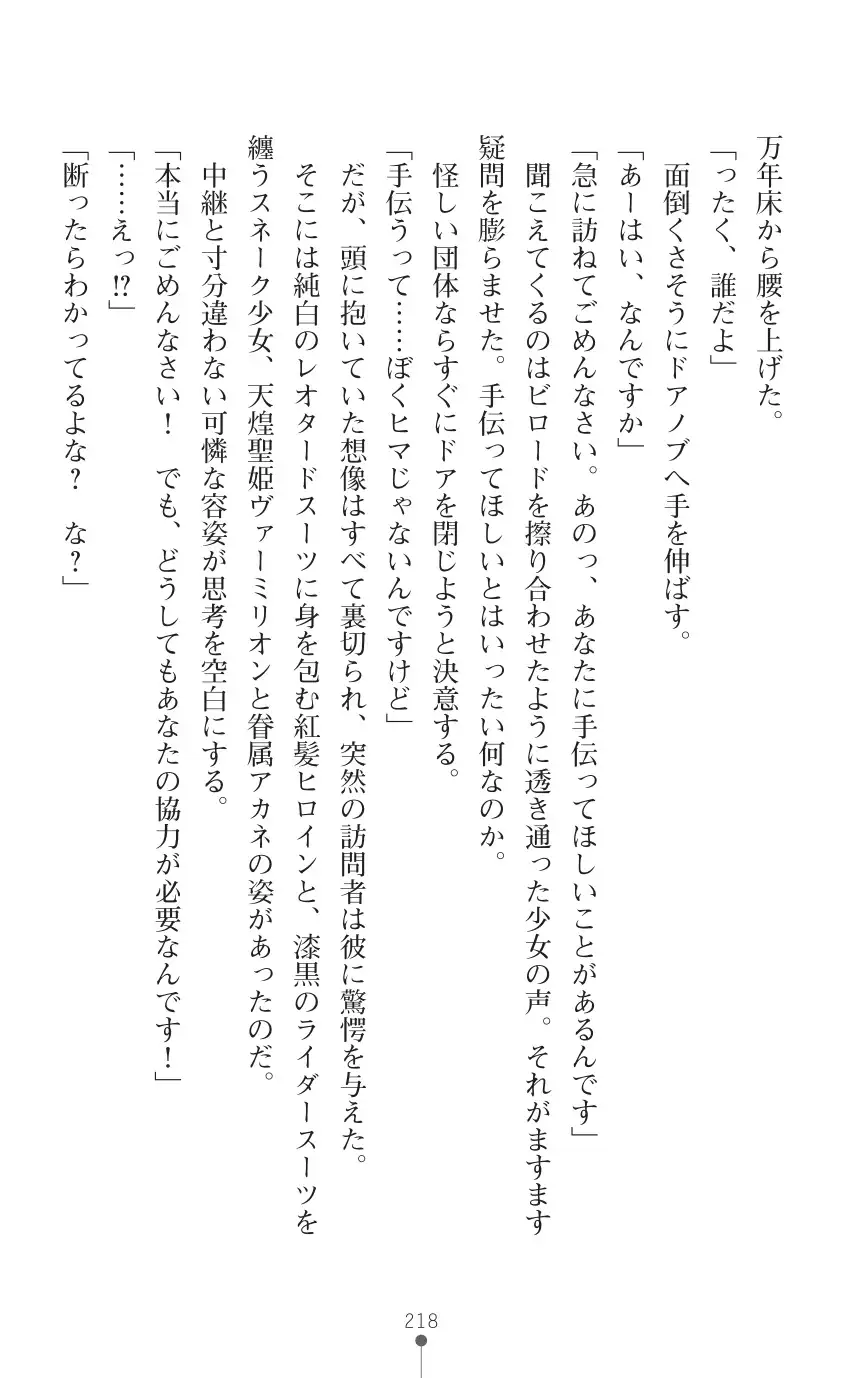 万年床から腰を上げた。
「ったく、誰だよ」
　面倒くさそうにドアノブへ手を伸ばす。
「あーはい、なんですか」
「急に訪ねてごめんなさい。あのっ、あなたに手伝ってほしいことがあるんです」
　聞こえてくるのはビロードを擦り合わせたように透き通った少女の声。それがますます
疑問を膨らませた。手伝ってほしいとはいったい何なのか。
　怪しい団体ならすぐにドアを閉じようと決意する。
「手伝うって……ぼくヒマじゃないんですけど」
　だが、頭に抱いていた想像はすべて裏切られ、突然の訪問者は彼に驚愕を与えた。
　そこには純白のレオタードスーツに身を包む紅髪ヒロインと、漆黒のライダースーツを
纏うスネーク少女、天煌聖姫ヴァーミリオンと眷属アカネの姿があったのだ。
　中継と寸分違わない可憐な容姿が思考を空白にする。
「本当にごめんなさい！　でも、どうしてもあなたの協力が必要なんです！」
「……えっ!?」
「断ったらわかってるよな？　な？」
218